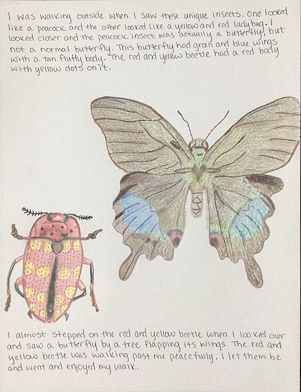 I was walking outside when I saw these unique insects. One looked
like a peacock and the other looked like a yellow and red ladybug. I
looked closer and the peacock insect was actually a butterfly, but
not a normal butterfly. This butterfly had green and blue wings
with a tan fluffy body. The red and yellow beetle had a red body
with yellow dots on it.
I almost stepped on the red and yellow beetle when I looked over
and saw a butterfly by a tree flapping its wings. The red and
yellow beetle was walking past me peacefully. I let them be
and went and enjoyed my walk.